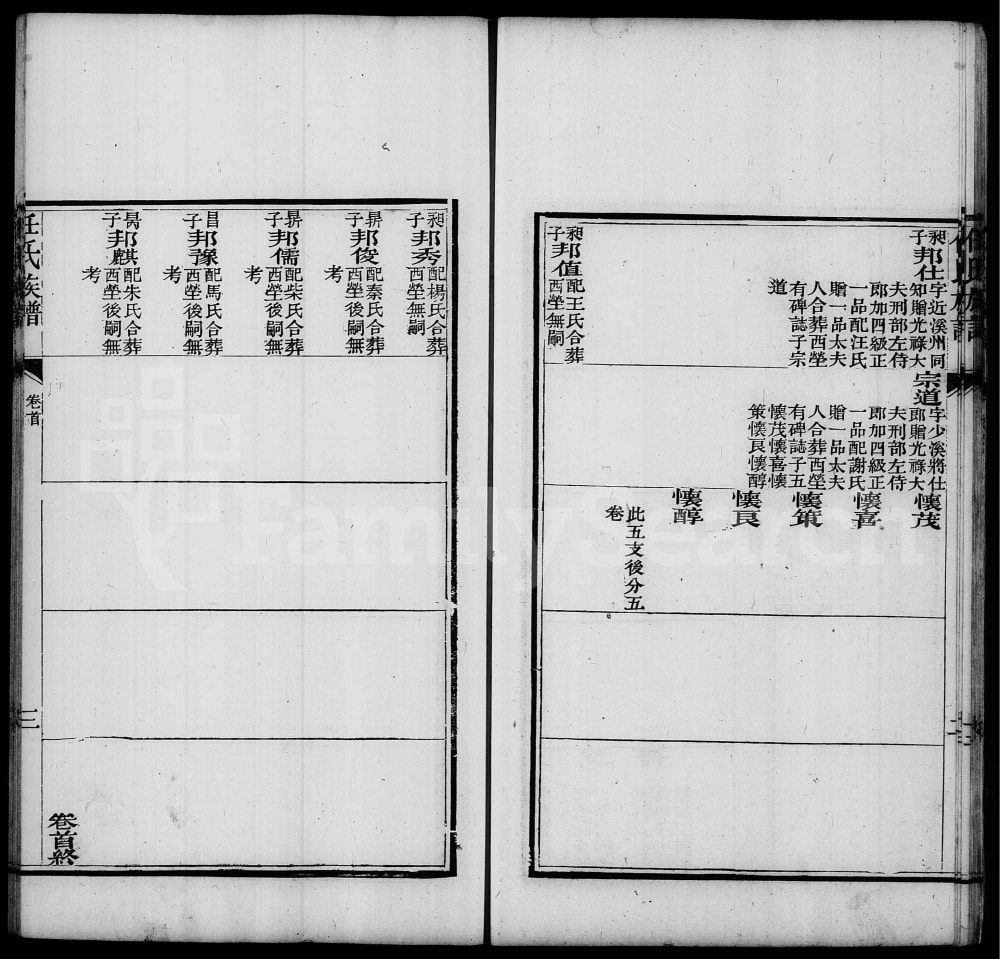 昶子
邦仕
字近溪州同
知贈光祿大
夫刑部左侍
郎加四級正
一品配汪氏
贈一品太夫
人合葬西塋
有碑誌子宗
道
昶子
邦值
配王氏合葬
西塋無嗣
宗道
字少溪將仕
郎贈光祿大
夫刑部左侍
郎加四級正
一品配謝氏
贈一品太夫
人合葬西塋
有碑誌子五
懷茂懷喜懷
策懷艮懷醇
懷茂
懷喜
懷策
懷艮
懷醇
此五支後分五
卷
昶子
邦秀
配楊氏合葬
西塋無嗣
昪子
邦俊
配秦氏合葬
西塋後嗣無
考
昪子
邦儒
配柴氏合葬
西塋後嗣無
考
昌子
邦豫
配馬氏合葬
西塋後嗣無
考
子
邦麒
配朱氏合葬
西塋後嗣無
考
卷首終
任氏族譜
卷首
三
FamilySearch